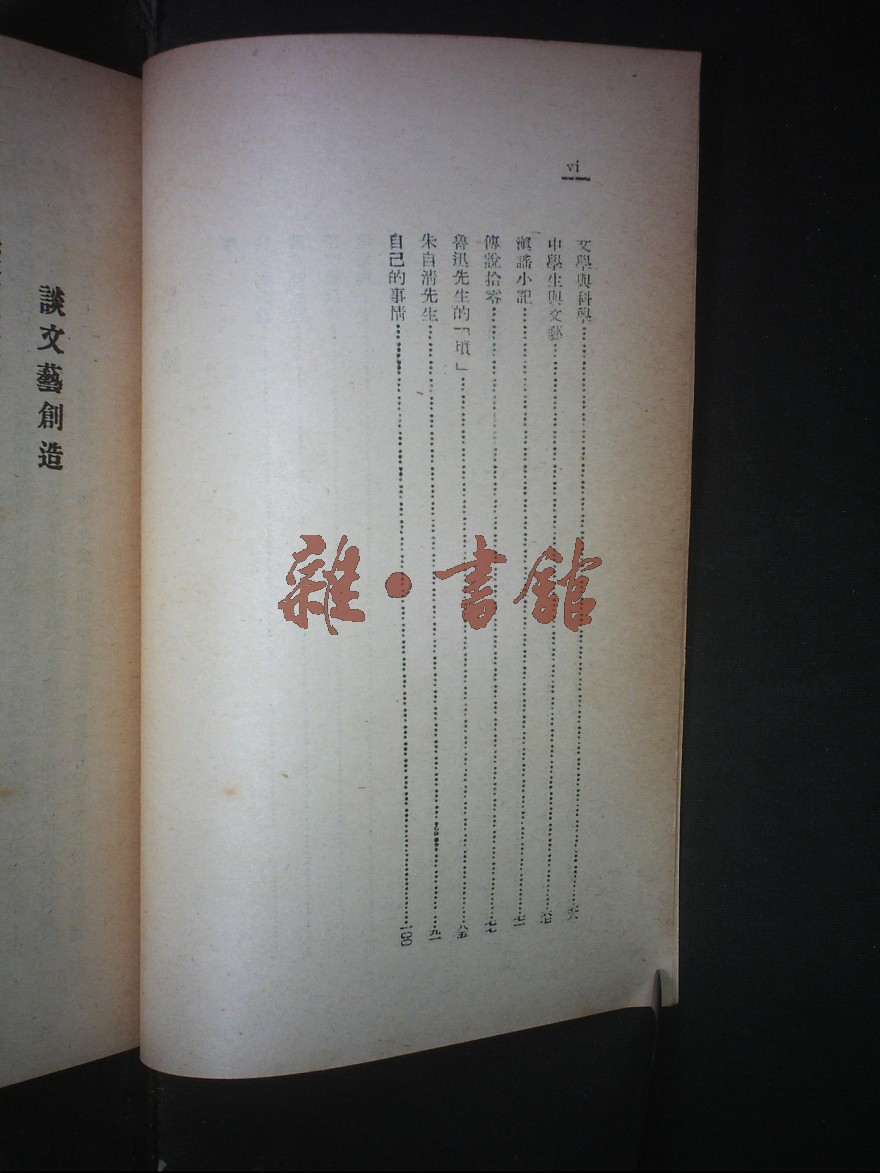 vi
文學與科學
中學生與文藝
滇謠小記……七一
傳說拾零……七七
魯迅先生的「墳」……八五
朱自淸先生……九一
自己的事情……一〇〇
談文藝創造
雜·書館